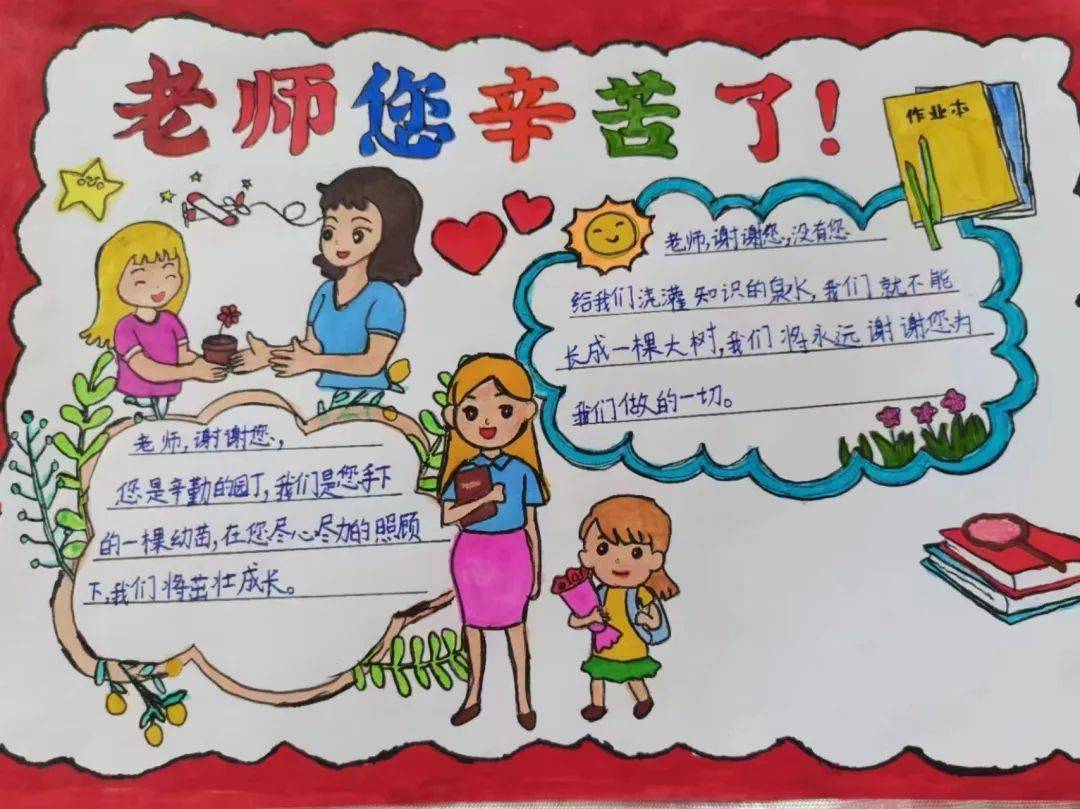 老师您辛苦了!
作业本
老师,谢谢您,没有您
给我们浇灌知识的泉水,我们就不能
长成一棵大树,我们将永远谢谢您为
我们做的一切。
老师,谢谢您,
您是辛勤的园丁,我们是您手下
的一棵幼苗,在您尽心尽力的照顾
下,我们将茁壮成长。